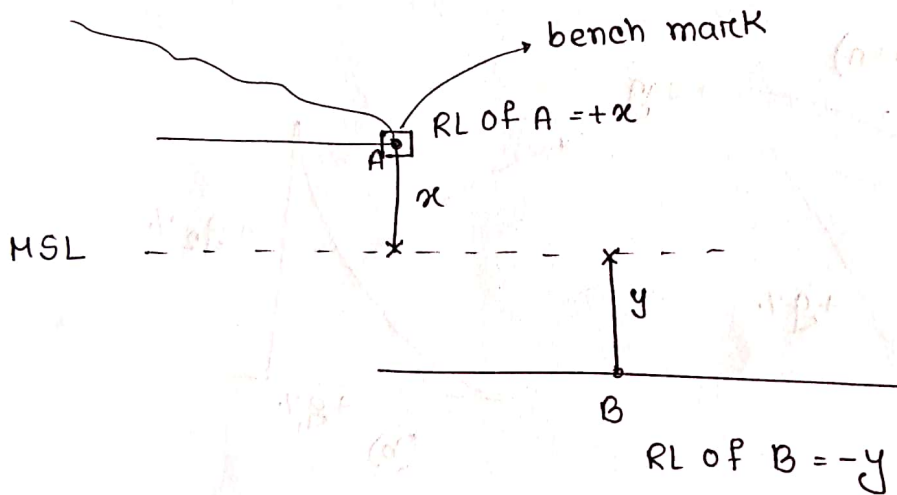 bench mark
RL Of A = +x
A
x
MSL
y
B
RL Of B = -y